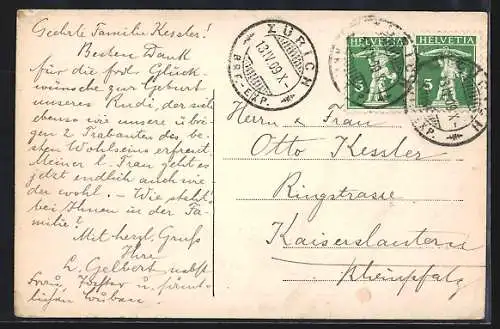 Geehrte Familie Kessler!
Besten Dank
für die frdl. Glück-
wünsche zur Geburt
unseres Rudi, der sich
ebenso wie unsere übri-
gen 2 Trabanten des be-
sten Wohlseins erfreit.
Meiner l. Frau geht es
jetzt endlich auch wie-
der wohl. - Wie steht's
bei Ihnen in der Fa-
milie?
Mit herzl. Gruß
Ihre
L. Gelbert nebst
Frau, u.
ZÜRICH
13.IV.09.X-
BRF.EXP.
HELVETIA
5
HELVETIA
5
Herrn & Frau
Otto Kessler
Ringstrasse
Kaiserslautern
Rheinpfalz